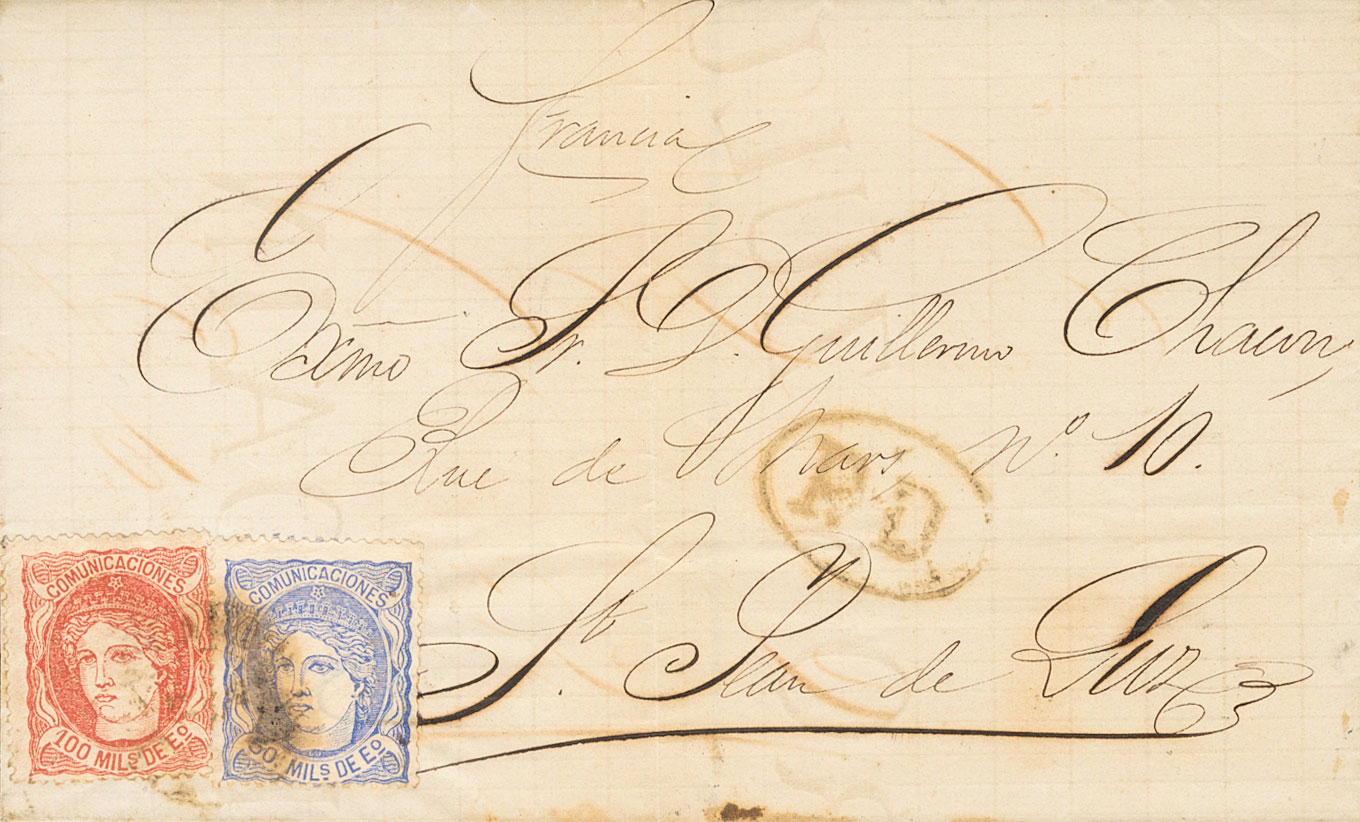 Francia
Exmo Sr. D. Guillermo Chacon,
Rue de Mars Nº 10.
St. Jean de Luz
P.D.
COMUNICACIONES
100 MILS. DE EO.
COMUNICACIONES
50. MILS. DE EO.